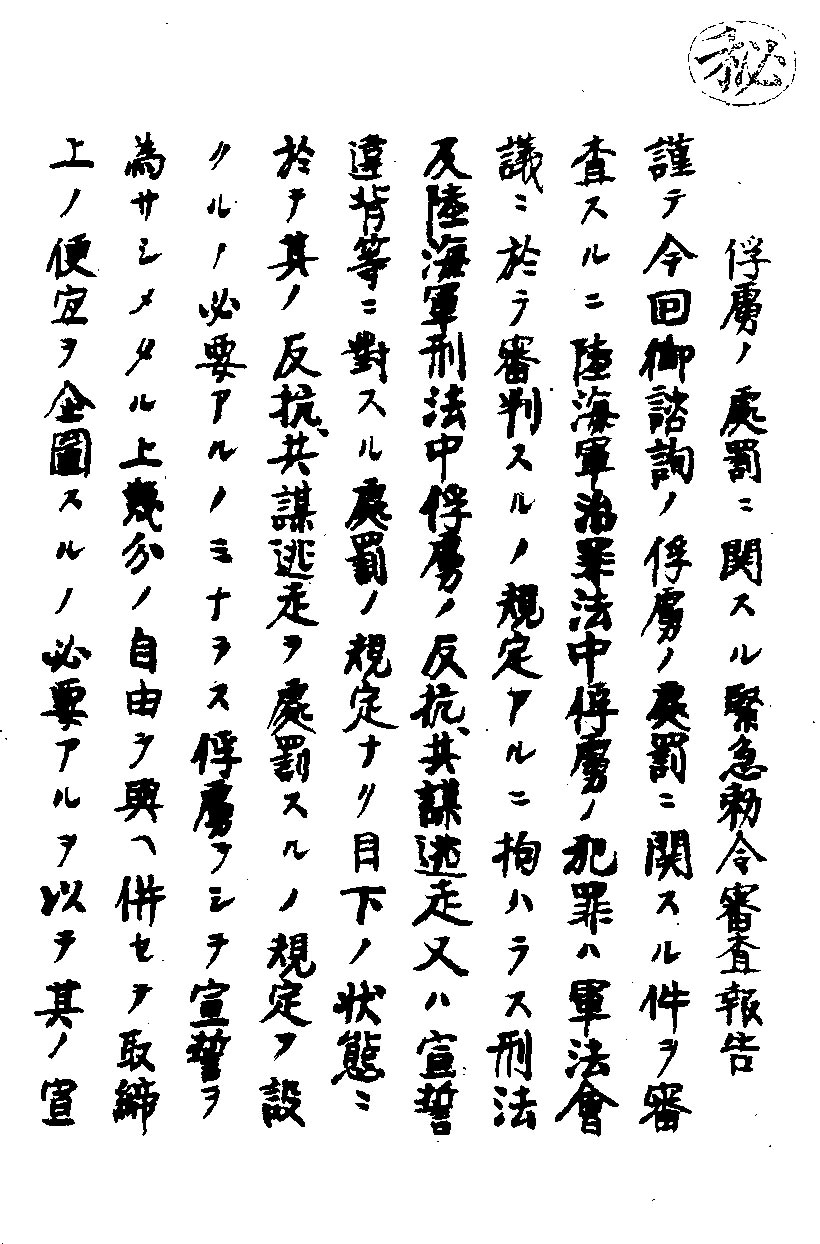 秘
俘虜ノ處罰ニ関スル緊急勅令審査報告
謹テ今回御諮詢ノ俘虜ノ處罰ニ関スル件ヲ審
査スルニ陸海軍治罪法中俘虜ノ犯罪ハ軍法會
議ニ於テ審判スルノ規定アルニ拘ハラス刑法
及陸海軍刑法中俘虜ノ反抗、共謀逃走又ハ宣誓
違背等ニ對スル處罰ノ規定ナク目下ノ状態ニ
於テ其ノ反抗、共謀逃走ヲ處罰スルノ規定ヲ設
クルノ必要アルノミナラス俘虜ヲシテ宣誓ヲ
為サシメタル上幾分ノ自由ヲ與ヘ併セテ取締
上ノ便宜ヲ企圖スルノ必要アルヲ以テ其ノ宣